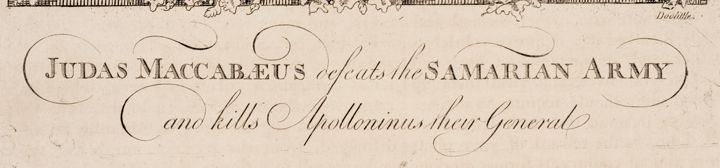 Doolittle.
JUDAS MACCABÆUS defeats the SAMARIAN ARMY
and kills Apolloninus their General